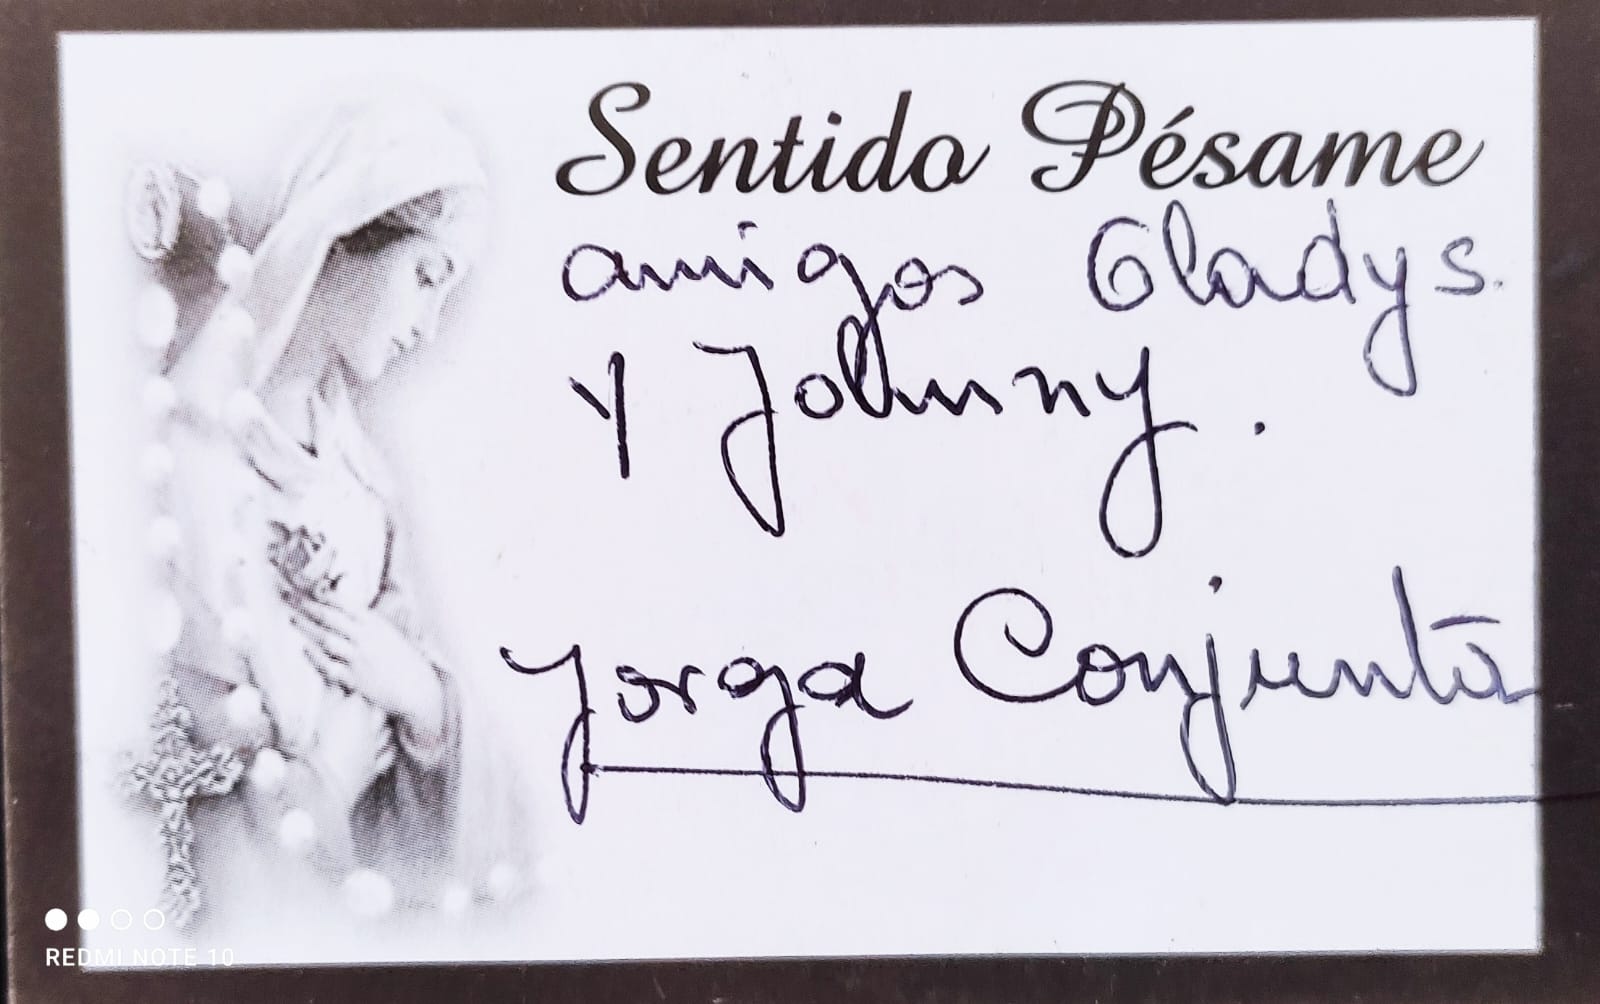 Sentido Pésame
amigos Gladys.
y Johnny.
Yorga Conjunta
REDMI NOTE 10